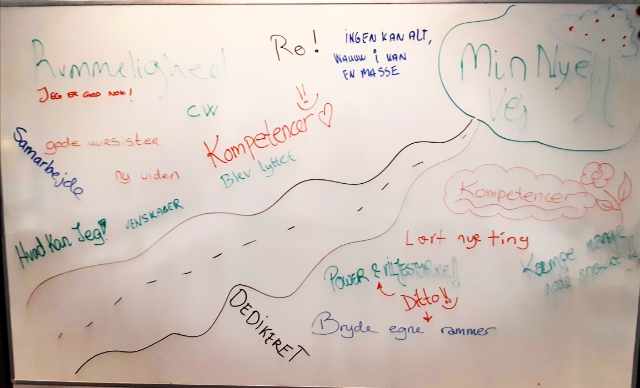 Rummelighed
JEG ER GOD NOK!
Ro!
INGEN KAN ALT,
WAUUW I KAN
EN MASSE
Min Nye
Vej
CW
gode kursister
Samarbejde
ny viden
Kompetencer
Blev lyttet
VENSKABER
Hvad Kan Jeg?
Kompetencer
Lært nye ting
POWER & VILJESTYRKE!!
Ditto!!
Bryde egne rammer
DEDIKERET
Kæmpe